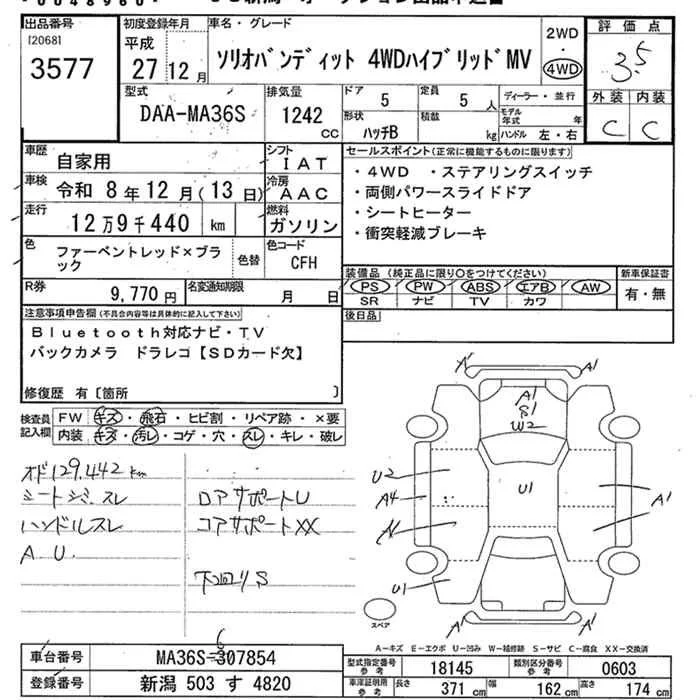 出品番号
[2068]
3577
初度登録年月
平成
27 12 月
車名・グレード
ソリオバンディット 4WDハイブリッドMV
2WD
・
4WD
評価点
3.5
外装 内装
C C
型式
DAA-MA36S
排気量
1242
CC
ドア
5
定員
5 人
形状
ハッチB
積載
kg
ディーラー・並行
モデル年式 年
ハンドル 左・右
車歴
自家用
シフト
IAT
車検
令和 8年12月(13日)
冷房
AAC
走行
12万9千440 km
燃料
ガソリン
色
ファーベントレッド×ブラック
色替
色コード
CFH
R券
9,770円
名変通知期限
月 日
セールスポイント(正常に機能するものに限ります)
・4WD ・ステアリングスイッチ
・両側パワースライドドア
・シートヒーター
・衝突軽減ブレーキ
装備品(純正品に限り○をつけてください)
PS PW ABS エアB AW
SR ナビ TV カワ
新車保証書
有・無
後日品
注意事項申告欄(不具合内容等は具体的に記入して下さい)
Bluetooth対応ナビ・TV
バックカメラ ドラレコ【SDカード欠】
修復歴 有〔箇所 〕
検査員記入欄
FW キズ・飛石・ヒビ割・リペア跡・×要
内装 キズ・汚レ・コゲ・穴・スレ・キレ・破レ
オド129.442km
シートシミ.スレ
ハンドルスレ
A U.
ロアサポートU
コアサポートXX
下回りS
A1 A1
A1
S1
W2
U2
A4
A1
U1
U1
A1
A1 A1
スペア
A-キズ E-エクボ U-凹み W-補修跡 S-サビ C-腐食 XX-交換済
車台番号
MA36S-307854
6
登録番号
新潟 503 す 4820
型式指定番号
参考
18145
類別区分番号
参考
0603
車庫証明用
参考
長さ 371 cm 幅 162 cm 高さ 174 cm